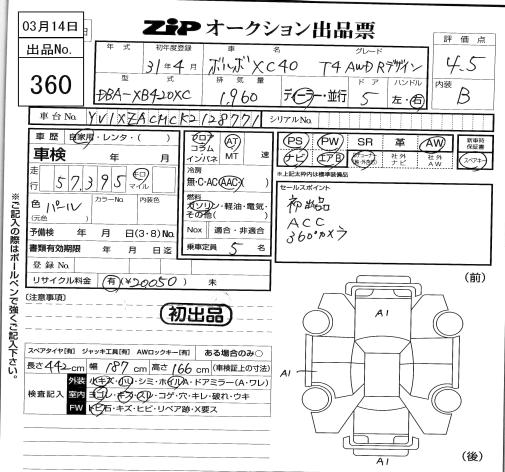 03月14日
出品No.
360
ZIP オークション出品票
年式 初年度登録 車名 グレード
31年4月 ボルボ XC40 T4 AWD Rデザイン
評価点
4.5
内装
B
型式 排気量 ドア ハンドル
DBA-XB420XC 1,960 ディーラー・並行 5 左・右
車台No. YV1XZACMCK2128771 シリアルNo.
車歴 自家用・レンタ・( )
車検 年 月
走行 57,395 キロ マイル
色 パール (元色) カラーNo. 内装色
予備検 年 月 日(3・8)No.
書類有効期限 年 月 日迄
登録No.
リサイクル料金 有(¥20050) 未
フロア コラム インパネ AT MT 速
冷房
無・C・AC AAC ( )
燃料
ガソリン・軽油・電気・その他( )
Nox 適合・非適合
乗車定員 5 名
PS PW SR 革 AW
ナビ エアB 社外ナビ 社外AW
新車時保証書
スペアキー
※上記太枠内は標準装備品
セールスポイント
初出品
ACC
360°カメラ
(注意事項)
初出品
スペアタイヤ[有] ジャッキ工具[有] AWロックキー[有] ある場合のみ○
長さ 442cm 幅 187cm 高さ 166cm (車検証上の寸法)
検査記入
外装 小キズ・小凹・シミ・ホイルA・ドアミラー(A・ワレ)
室内 ヨゴレ・キズ・スレ・コゲ・穴・キレ・破れ・ウキ
FW トビ石・キズ・ヒビ・リペア跡・X要ス
(前)
A1
A1
A1
(後)
※ご記入の際はボールペンで強くご記入下さい。